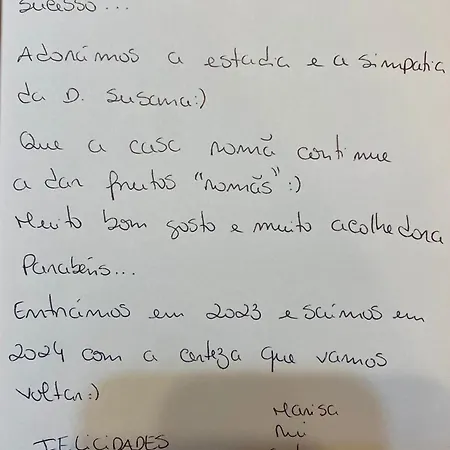 sucesso...
Adorámos a estadia e a simpatia
da D. Susana:)
Que a casa romã continue
a dar frutos "romãs" :)
Muito bom gosto e muito acolhedora
Parabéns...
Entrámos em 2023 e saímos em
2024 com a certeza que vamos
voltar:)
Marisa
Rui
FELICIDADES